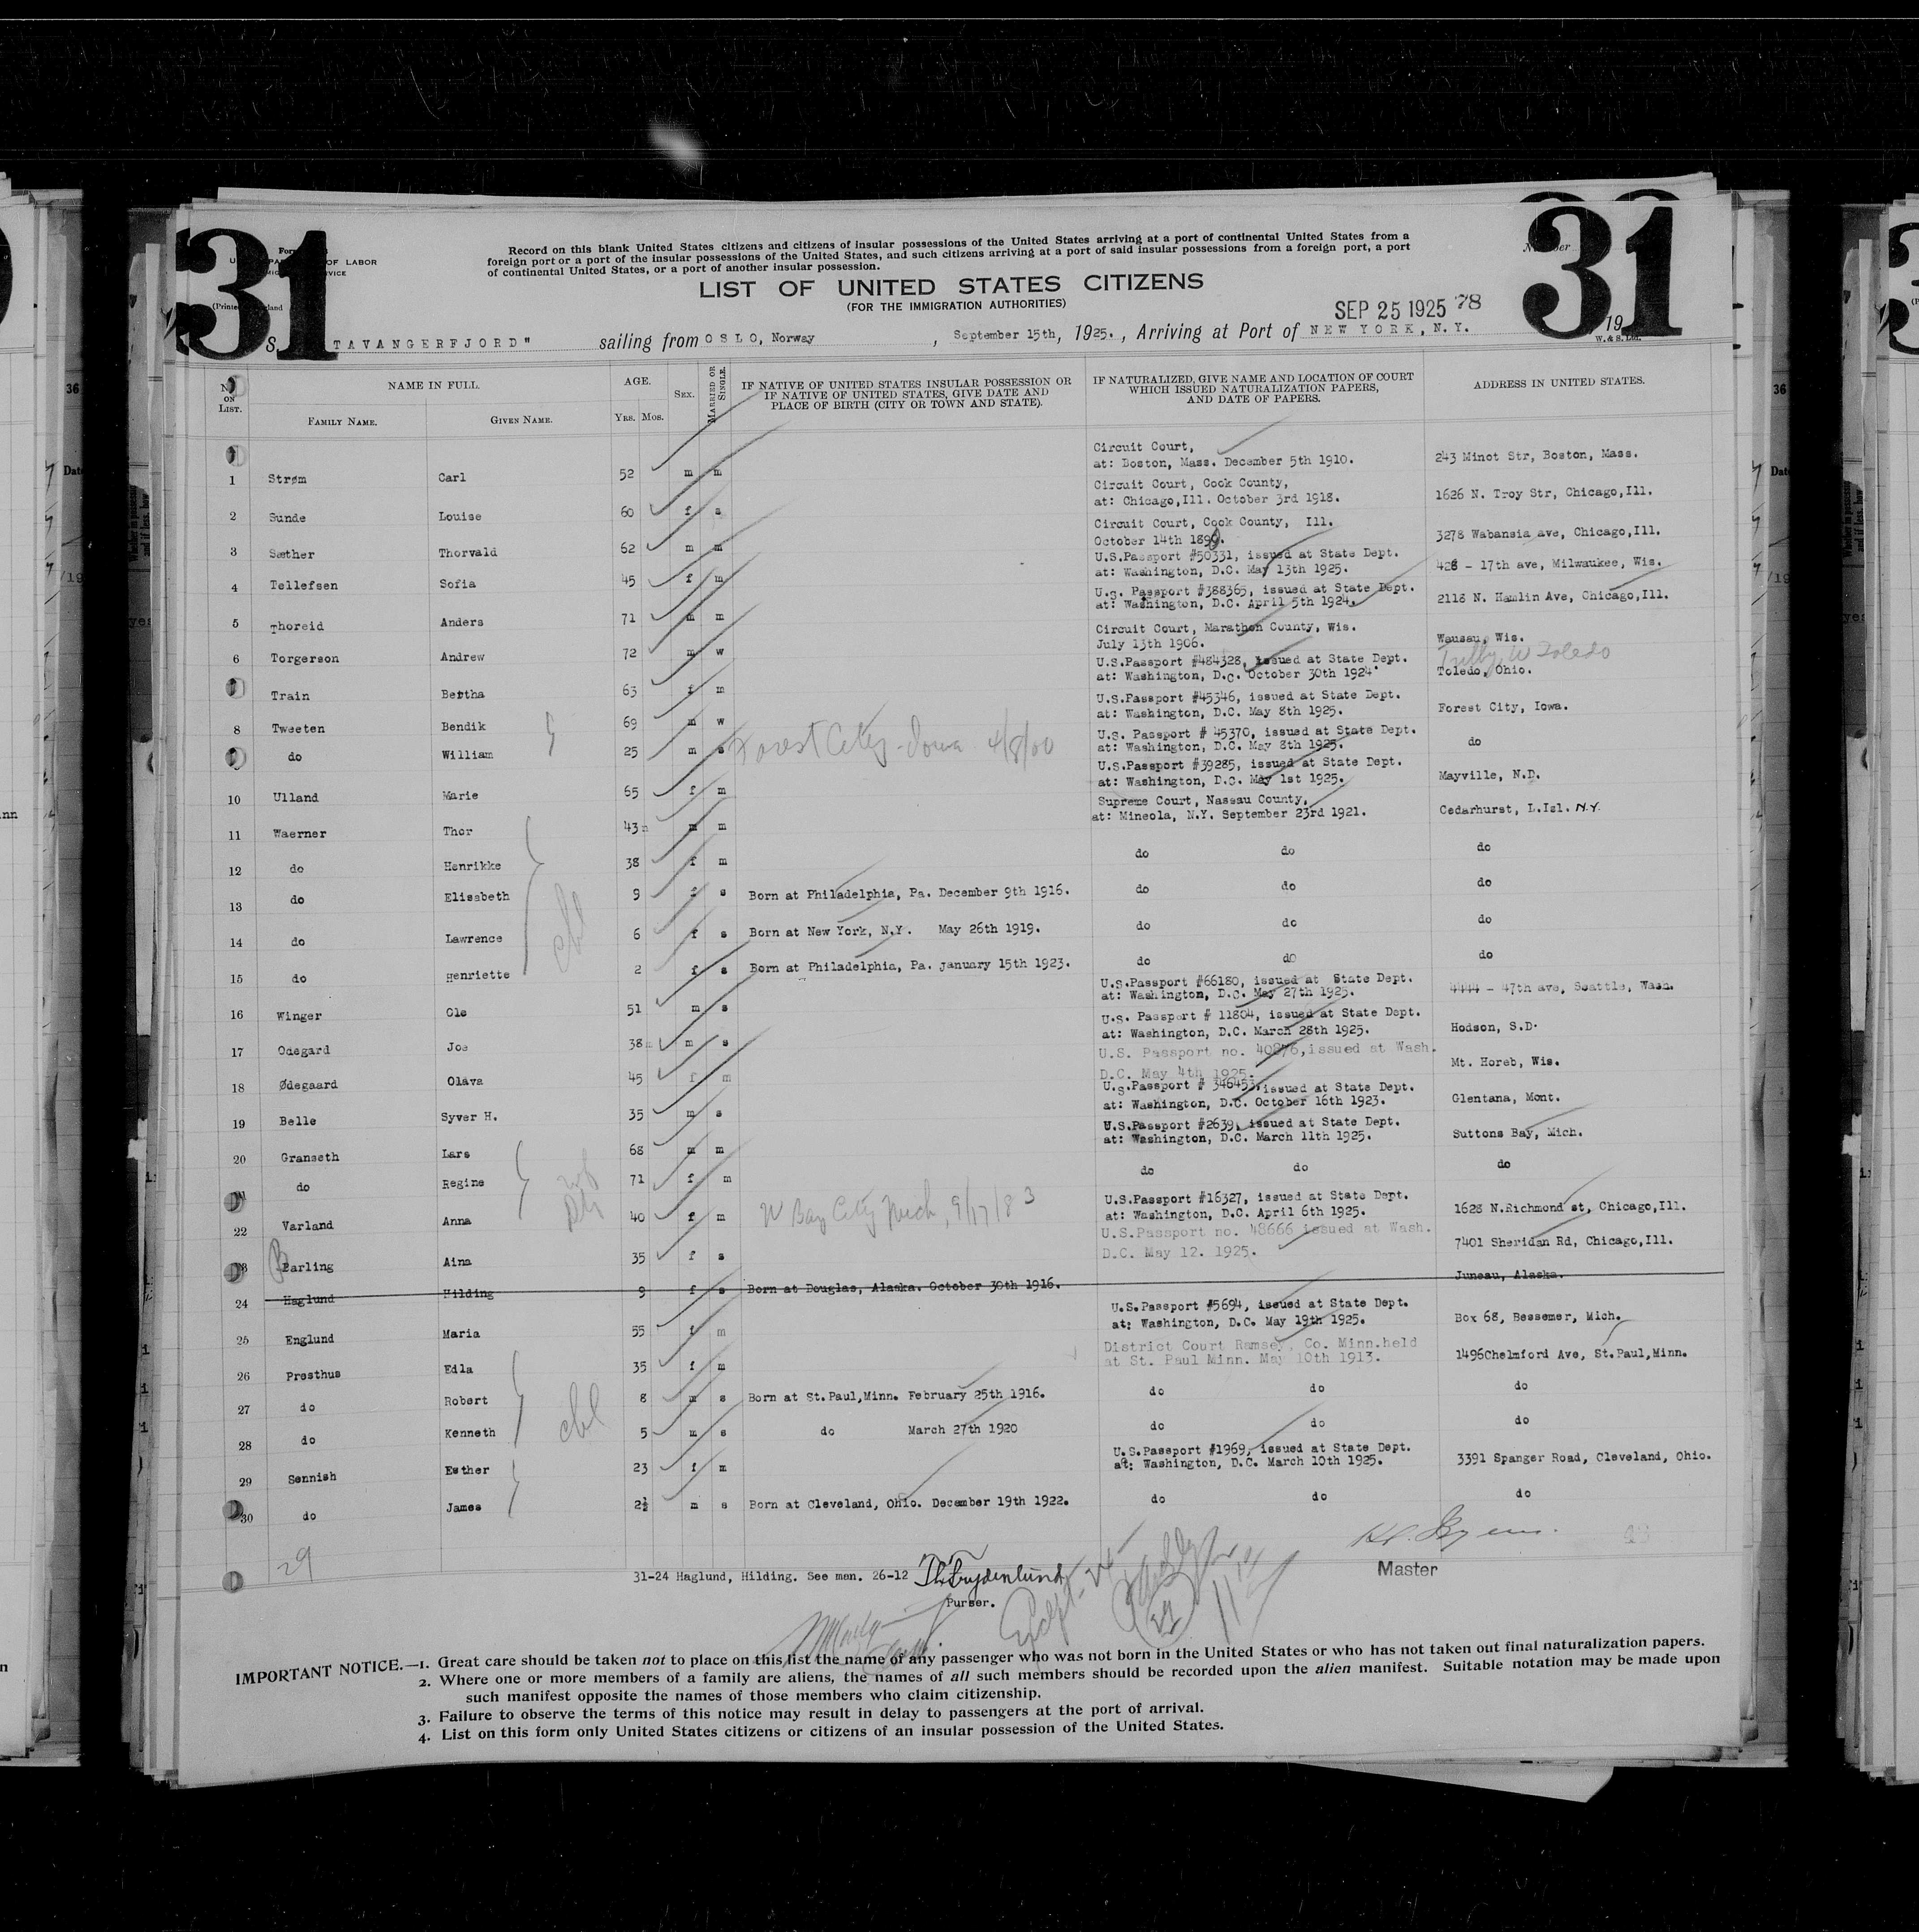 31
31
Record on this blank United States citizens and citizens of insular possessions of the United States arriving at a port of continental United States from a
foreign port or a port of the insular possessions of the United States, and such citizens arriving at a port of said insular possessions from a foreign port, a port
of continental United States, or a port of another insular possession.
OF LABOR
LIST OF UNITED STATES CITIZENS
(FOR THE IMMIGRATION AUTHORITIES)
SEP 25 1925 78
S. TAVANGERFJORD" sailing from OSLO, Norway, September 15th, 1925., Arriving at Port of NEW YORK, N.Y. 19
W. & S. Ltd.
No. ON LIST.
NAME IN FULL.
FAMILY NAME. GIVEN NAME.
AGE.
YRS. MOS.
SEX.
MARRIED OR SINGLE.
IF NATIVE OF UNITED STATES INSULAR POSSESSION OR
IF NATIVE OF UNITED STATES, GIVE DATE AND
PLACE OF BIRTH (CITY OR TOWN AND STATE).
IF NATURALIZED, GIVE NAME AND LOCATION OF COURT
WHICH ISSUED NATURALIZATION PAPERS,
AND DATE OF PAPERS.
ADDRESS IN UNITED STATES.
1 Strøm Carl 52 m m Circuit Court, 243 Minot Str, Boston, Mass.
at: Boston, Mass. December 5th 1910.
2 Sunde Louise 60 f s Circuit Court, Cook County, 1626 N. Troy Str, Chicago,Ill.
at: Chicago,Ill. October 3rd 1918.
3 Sæther Thorvald 62 m m Circuit Court, Cook County, Ill. 3278 Wabansia ave, Chicago,Ill.
October 14th
4 Tellefsen Sofia 45 f m U.S.Passport #50331, issued at State Dept. 428 - 17th ave, Milwaukee, Wis.
at: Washington, D.C. May 13th 1925.
5 Thoreid Anders 71 m m U.S. Passport #388365, issued at State Dept. 2118 N. Hamlin Ave, Chicago,Ill.
at: Washington, D.C. April 5th 1924.
6 Torgerson Andrew 72 m w Circuit Court, Marathon County, Wis. Wausau, Wis.
July 13th 1906.
Train Bertha 63 f m U.S.Passport #484328, issued at State Dept. W Toledo
at: Washington, D.C. October 30th 1924 Toledo, Ohio.
8 Tweeten Bendik 69 m w U.S.Passport #45346, issued at State Dept. Forest City, Iowa.
at: Washington, D.C. May 8th 1925.
do William 25 m s Forest City - Iowa 4/8/00 U.S. Passport # 45370, issued at State Dept. do
at: Washington, D.C. May 8th 1925.
10 Ulland Marie 65 f m U.S.Passport #39285, issued at State Dept. Mayville, N.D.
at: Washington, D.C. May 1st 1925.
11 Waerner Thor 43 m m Supreme Court, Nassau County, Cedarhurst, L.Isl. N.Y.
at: Mineola, N.Y. September 23rd 1921.
12 do Henrikke 38 f m do do do
13 do Elisabeth 9 f s Born at Philadelphia, Pa. December 9th 1916. do do do
14 do Lawrence 6 f s Born at New York, N.Y. May 26th 1919. do do do
15 do Henriette 2 f s Born at Philadelphia, Pa. January 15th 1923. do do do
16 Winger Ole 51 m s U.S.Passport #66180, issued at State Dept. 4444 - 47th ave, Seattle, Wash.
at: Washington, D.C. May 27th 1925.
17 Odegard Joe 38 m s U.S. Passport # 11804, issued at State Dept. Hodson, S.D.
at: Washington, D.C. March 28th 1925.
18 Ødegaard Olava 45 f m U.S. Passport no. 40876,issued at Wash. Mt. Horeb, Wis.
D.C. May 4th 1925.
19 Belle Syver H. 35 m s U.S.Passport # 346453,issued at State Dept. Glentana, Mont.
at: Washington, D.C. October 16th 1923.
20 Granseth Lars 68 m m U.S.Passport #2639, issued at State Dept. Suttons Bay, Mich.
at: Washington, D.C. March 11th 1925.
do Regine 71 f m do do do
22 Varland Anna 40 f m W Bay City Mich, 9/17/83 U.S.Passport #16327, issued at State Dept. 1628 N.Richmond st, Chicago,Ill.
at: Washington, D.C. April 6th 1925.
Barling Aina 35 f s U.S.Passport no. 48666 issued at Wash. 7401 Sheridan Rd, Chicago,Ill.
D.C. May 12. 1925.
24 Haglund Hilding 9 f s Born at Douglas, Alaska. October 30th 1916. Juneau, Alaska.
25 Englund Maria 55 f m U.S.Passport #5694, issued at State Dept. Box 68, Bessemer, Mich.
at: Washington, D.C. May 19th 1925.
26 Presthus Edla 35 f m District Court Ramsey, Co. Minn.held 1496Chelmford Ave, St.Paul,Minn.
at St. Paul Minn. May 10th 1913.
27 do Robert 8 m s Born at St.Paul,Minn. February 25th 1916. do do do
28 do Kenneth 5 m s do March 27th 1920 do do do
29 Sennish Esther 23 f m U.S.Passport #1969, issued at State Dept. 3391 Spanger Road, Cleveland, Ohio.
at: Washington, D.C. March 10th 1925.
30 do James 2½ m s Born at Cleveland, Ohio. December 19th 1922. do do do
29
31-24 Haglund, Hilding. See man. 26-12
Purser.
Master
IMPORTANT NOTICE.—1. Great care should be taken not to place on this list the name of any passenger who was not born in the United States or who has not taken out final naturalization papers.
2. Where one or more members of a family are aliens, the names of all such members should be recorded upon the alien manifest. Suitable notation may be made upon
such manifest opposite the names of those members who claim citizenship.
3. Failure to observe the terms of this notice may result in delay to passengers at the port of arrival.
4. List on this form only United States citizens or citizens of an insular possession of the United States.